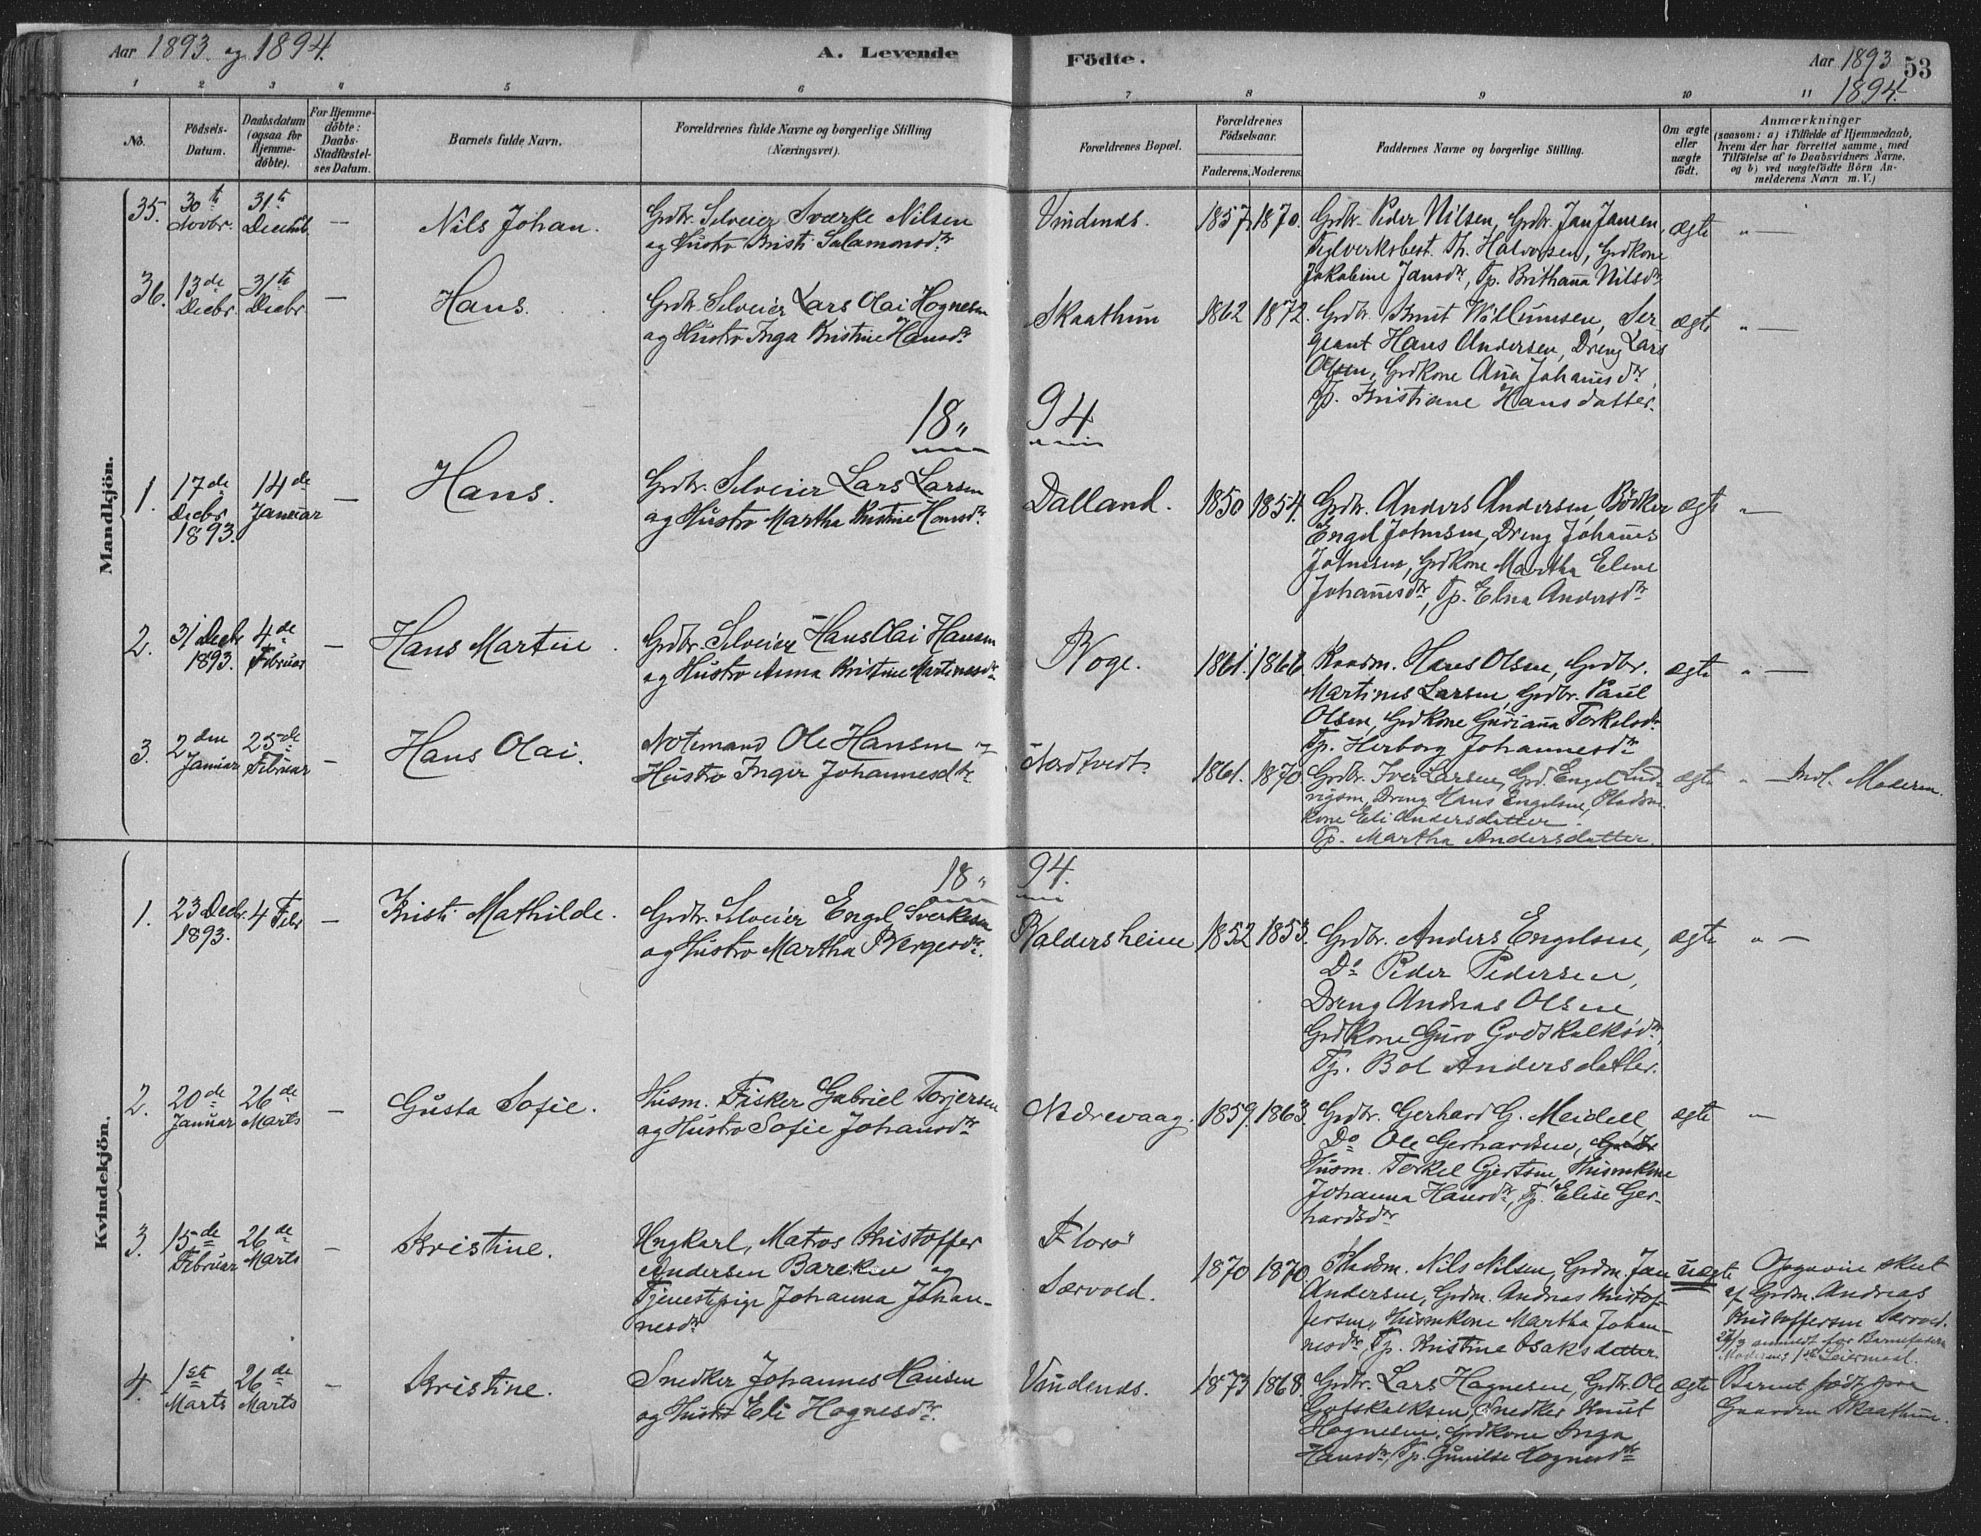 Aar 1893 og 1894.
A. Levende
Födte.
Aar 1893
1894.
53
1 2 3 4 5 6 7 8 9 10 11
No.
Födsels-
Datum.
Daabsdatum
(ogsaa for
Hjemme-
döbte).
For Hjemme-
döbte:
Daabs-
Stadfæstel-
ses Datum.
Barnets fulde Navn.
Forældrenes fulde Navne og borgerlige Stilling
(Næringsvei).
Forældrenes Bopæl.
Forældrenes
Födselsaar.
Faderens. Moderens.
Faddernes Navne og borgerlige Stilling.
Om ægte
eller
uægte
födt.
Anmærkninger
(saasom: a) i Tilfælde af Hjemmedaab,
hvem der har forrettet samme, med
Tilföielse af to Daabsvidners Navne,
og b) ved uægtefödte Börn An-
melderens Navn m. V.)
Mandkjön.
35.
30te
Novbr.
31te
Decbr
—
Nils Johan.
Grdbr. Selveier Sværke Nilsen
og Hustro Kristi Salamonsdtr
Vindenes.
1857 1870.
Grdbr. Peder Nilsen, Grdbr. Jan Jansen,
Th. Halvorsen, Grdkone
Jakobine Jansdtr, Tp. Brithanna Nilsdtr
ægte
" —
36.
13de
Decbr
31te
Decbr
—
Hans.
Grdbr. Selveier Lars Olai Hognesen
og Hustro Inga Kristine Hansdtr
Skaathun
1862 1872.
Grdbr. Knut Willumsen, Ser-
geant Hans Andersen, Dreng Lars
Olsen, Grdkone Anna Johannesdtr,
Tp. Kristiane Hansdatter.
ægte
" —
18 " 94
1.
17de
Decbr
1893.
14de
Januar
—
Hans.
Grdbr. Selveier Lars Larsen
og Hustro Martha Kristine Hansdtr.
Dalland.
1850 1854.
Grdbr. Anders Andersen, Bödker
Engel Johnsen, Dreng Johannes
Johnsen, Grdkone Martha Eline
Johannesdtr, Tp. Elna Andersdtr
ægte
" —
2.
31 Decbr
1893.
4de
Februar
—
Hans Martin.
Grdbr. Selveier Hans Olai Hansen
og Hustro Anna Kristine Martinesdtr
Boge.
1861. 1866.
Kaadm. Hans Olsen, Grdbr.
Martines Larsen, Grdbr. Paul
Olsen, Grdkone Guriana Torkelsdtr
Tp. Herborg Johannesdtr
ægte
" —
3.
2den
Januar
25de
Februar
—
Hans Olai.
Notemand Ole Hansen og
Hustro Inger Johannesdtr.
Nordtvedt
1861. 1870
Grdbr. Iver Larsen, Grd. Engel Lud-
vigsen, Dreng Hans Engelsen, Pladsm-
kone Eli Andersdatter.
Tp. Martha Andersdatter.
ægte
" — Intr. Moderen.
18 " 94.
Kvindekjön.
1.
23 Decbr.
1893.
4 Febr
—
Kristi Mathilde.
Grdbr. Selveier Engel Sverkesen
og Hustro Martha Bergesdtr.
Baldersheim
1852 1853.
Grdbr. Anders Engelsen,
Do Peder Pedersen,
Dreng Andreas Olsen
Grdkone Guro Godskalksdtr,
Tp. Bol Andersdatter.
ægte
" —
2.
20de
Januar
26de
Marts
—
Gusta Sofie.
Husm. Fisker Gabriel Torjersen
og Hustro Sofie Johansdtr
Nedrevaag.
1859. 1863.
Grdbr. Gerhard G. Meidell,
Do Ole Gerhardsen,
Husm. Torkel Gjertsen, Husmkone
Johanna Hansdtr, Tp. Elise Ger-
hardsdtr
ægte
" —
3.
15de
Februar
26de
Marts
—
Kristine.
Ungkarl, Matros Kristoffer
Andersen Barekn og
Tjenestepige Johanna Johan-
nesdtr
Florö
Særvold.
1870 1870.
Pladsm. Nils Nilsen, Grdm. Jan
Andersen, Grdm. Andreas Kristof-
fersen, Husmkone Martha Johan-
nesdtr, Tp. Kristine Osaksdatter.
uægte
Opgaven skeet
af Grdm. Andreas
Kristoffersen Særvold.
27/3 anmeldt for Barnefader
Moderens 1ste Leiermaal.
4.
1ste
Marts
26de
Marts
—
Kristine.
Snedker Johannes Hansen
og Hustro Eli Hognesdtr.
Vindenes.
1873 1868.
Grdbr. Lars Hognesen, Grdbr. Ole
Gotskalksen, Snedker Knut
Hognesen, Grdkone Inga
Hansdtr, Tp. Gunilde Hognesdtr
ægte
Barnet född paa
Gaarden Skaathun.